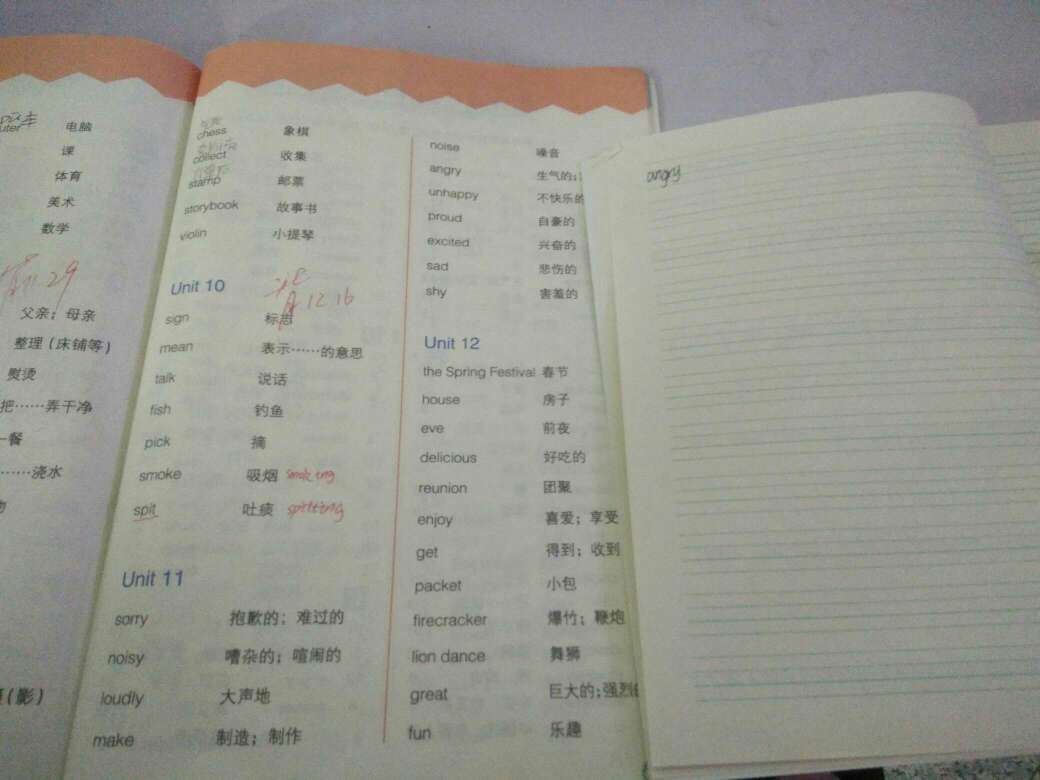 uter 电脑
课
体育
美术
数学
11.29
父亲；母亲
整理（床铺等）
熨烫
把……弄干净
一餐
……浇水
（影）
chess 象棋
collect 收集
stamp 邮票
storybook 故事书
violin 小提琴
Unit 10
12 16
sign 标志
mean 表示……的意思
talk 说话
fish 钓鱼
pick 摘
smoke 吸烟 smoking
spit 吐痰 spitting
Unit 11
sorry 抱歉的；难过的
noisy 嘈杂的；喧闹的
loudly 大声地
make 制造；制作
noise 噪音
angry 生气的；
unhappy 不快乐的
proud 自豪的
excited 兴奋的
sad 悲伤的
shy 害羞的
Unit 12
the Spring Festival 春节
house 房子
eve 前夜
delicious 好吃的
reunion 团聚
enjoy 喜爱；享受
get 得到；收到
packet 小包
firecracker 爆竹；鞭炮
lion dance 舞狮
great 巨大的；强烈的
fun 乐趣
angry